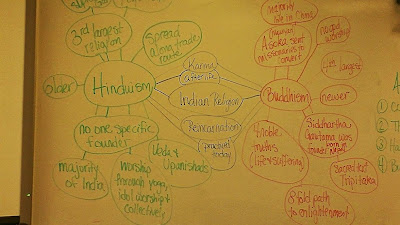 3rd largest
religion
Spread
along trade
route
older
Hinduism
no one specific
founder
majority
of India
Worship
through yoga,
idol worship &
collectively
Vedas
Upanishads
Karma
afterlife
Indian Religion
Reincarnation
practiced
today
Buddhism
majority
live in China
Asoka sent
missionaries to
convert
largest
newer
Siddhartha
Gautama was
born in
Nepal
Sacred text
Tripitaka
4 noble
life & suffering
8 fold path
to enlightenment